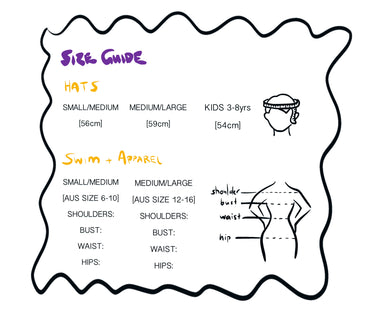 SIZE GUIDE
HATS
SMALL/MEDIUM MEDIUM/LARGE KIDS 3-8yrs
[56cm] [59cm] [54cm]
SWIM + APPAREL
SMALL/MEDIUM MEDIUM/LARGE
[AUS SIZE 6-10] [AUS SIZE 12-16]
SHOULDERS: SHOULDERS:
BUST: BUST:
WAIST: WAIST:
HIPS: HIPS:
shoulder
bust
waist
hip